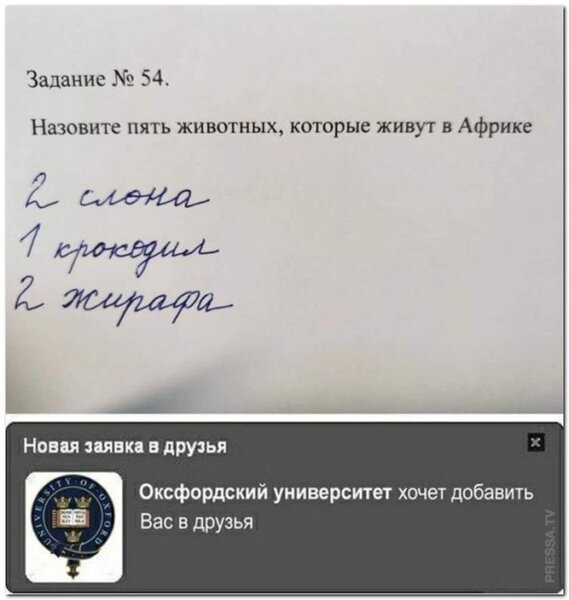 Задание № 54.
Назовите пять животных, которые живут в Африке
2 слона
1 крокодил
2 жирафа
Новая заявка в друзья
UNIVERSITY OF OXFORD
Оксфордский университет хочет добавить
Вас в друзья
PRESSA.TV